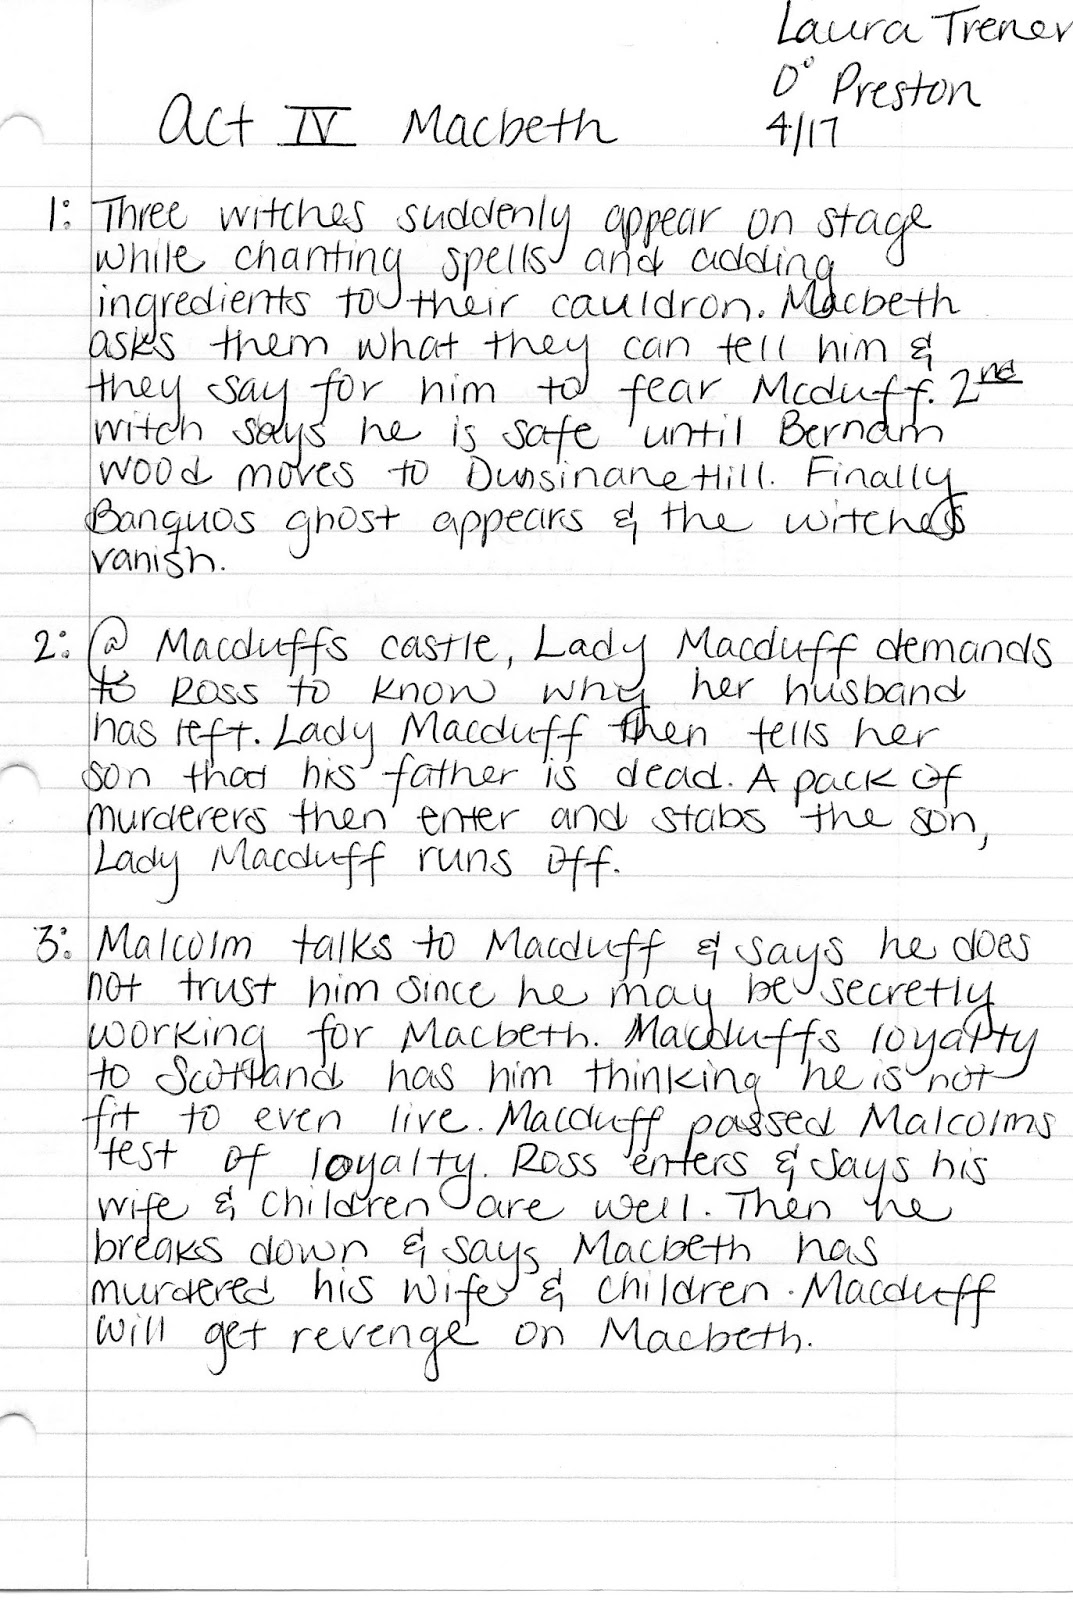 Laura Trener
0° Preston
4/17
Act IV Macbeth
1: Three witches suddenly appear on stage
while chanting spells and adding
ingredients to their cauldron. Macbeth
asks them what they can tell him &
they say for him to fear Mcduff. 2nd
witch says he is safe until Bernam
wood moves to Dunsinane Hill. Finally
Banquos ghost appears & the witches
vanish.
2: @ Macduffs castle, Lady Macduff demands
to Ross to know why her husband
has left. Lady Macduff then tells her
son that his father is dead. A pack of
murderers then enter and stabs the son,
Lady Macduff runs off.
3: Malcolm talks to Macduff & says he does
not trust him since he may be secretly
working for Macbeth. Macduffs loyalty
to Scottland has him thinking he is not
fit to even live. Macduff passed Malcolms
test of loyalty. Ross enters & says his
wife & children are well. Then he
breaks down & says Macbeth has
murdered his wife & children. Macduff
will get revenge on Macbeth.